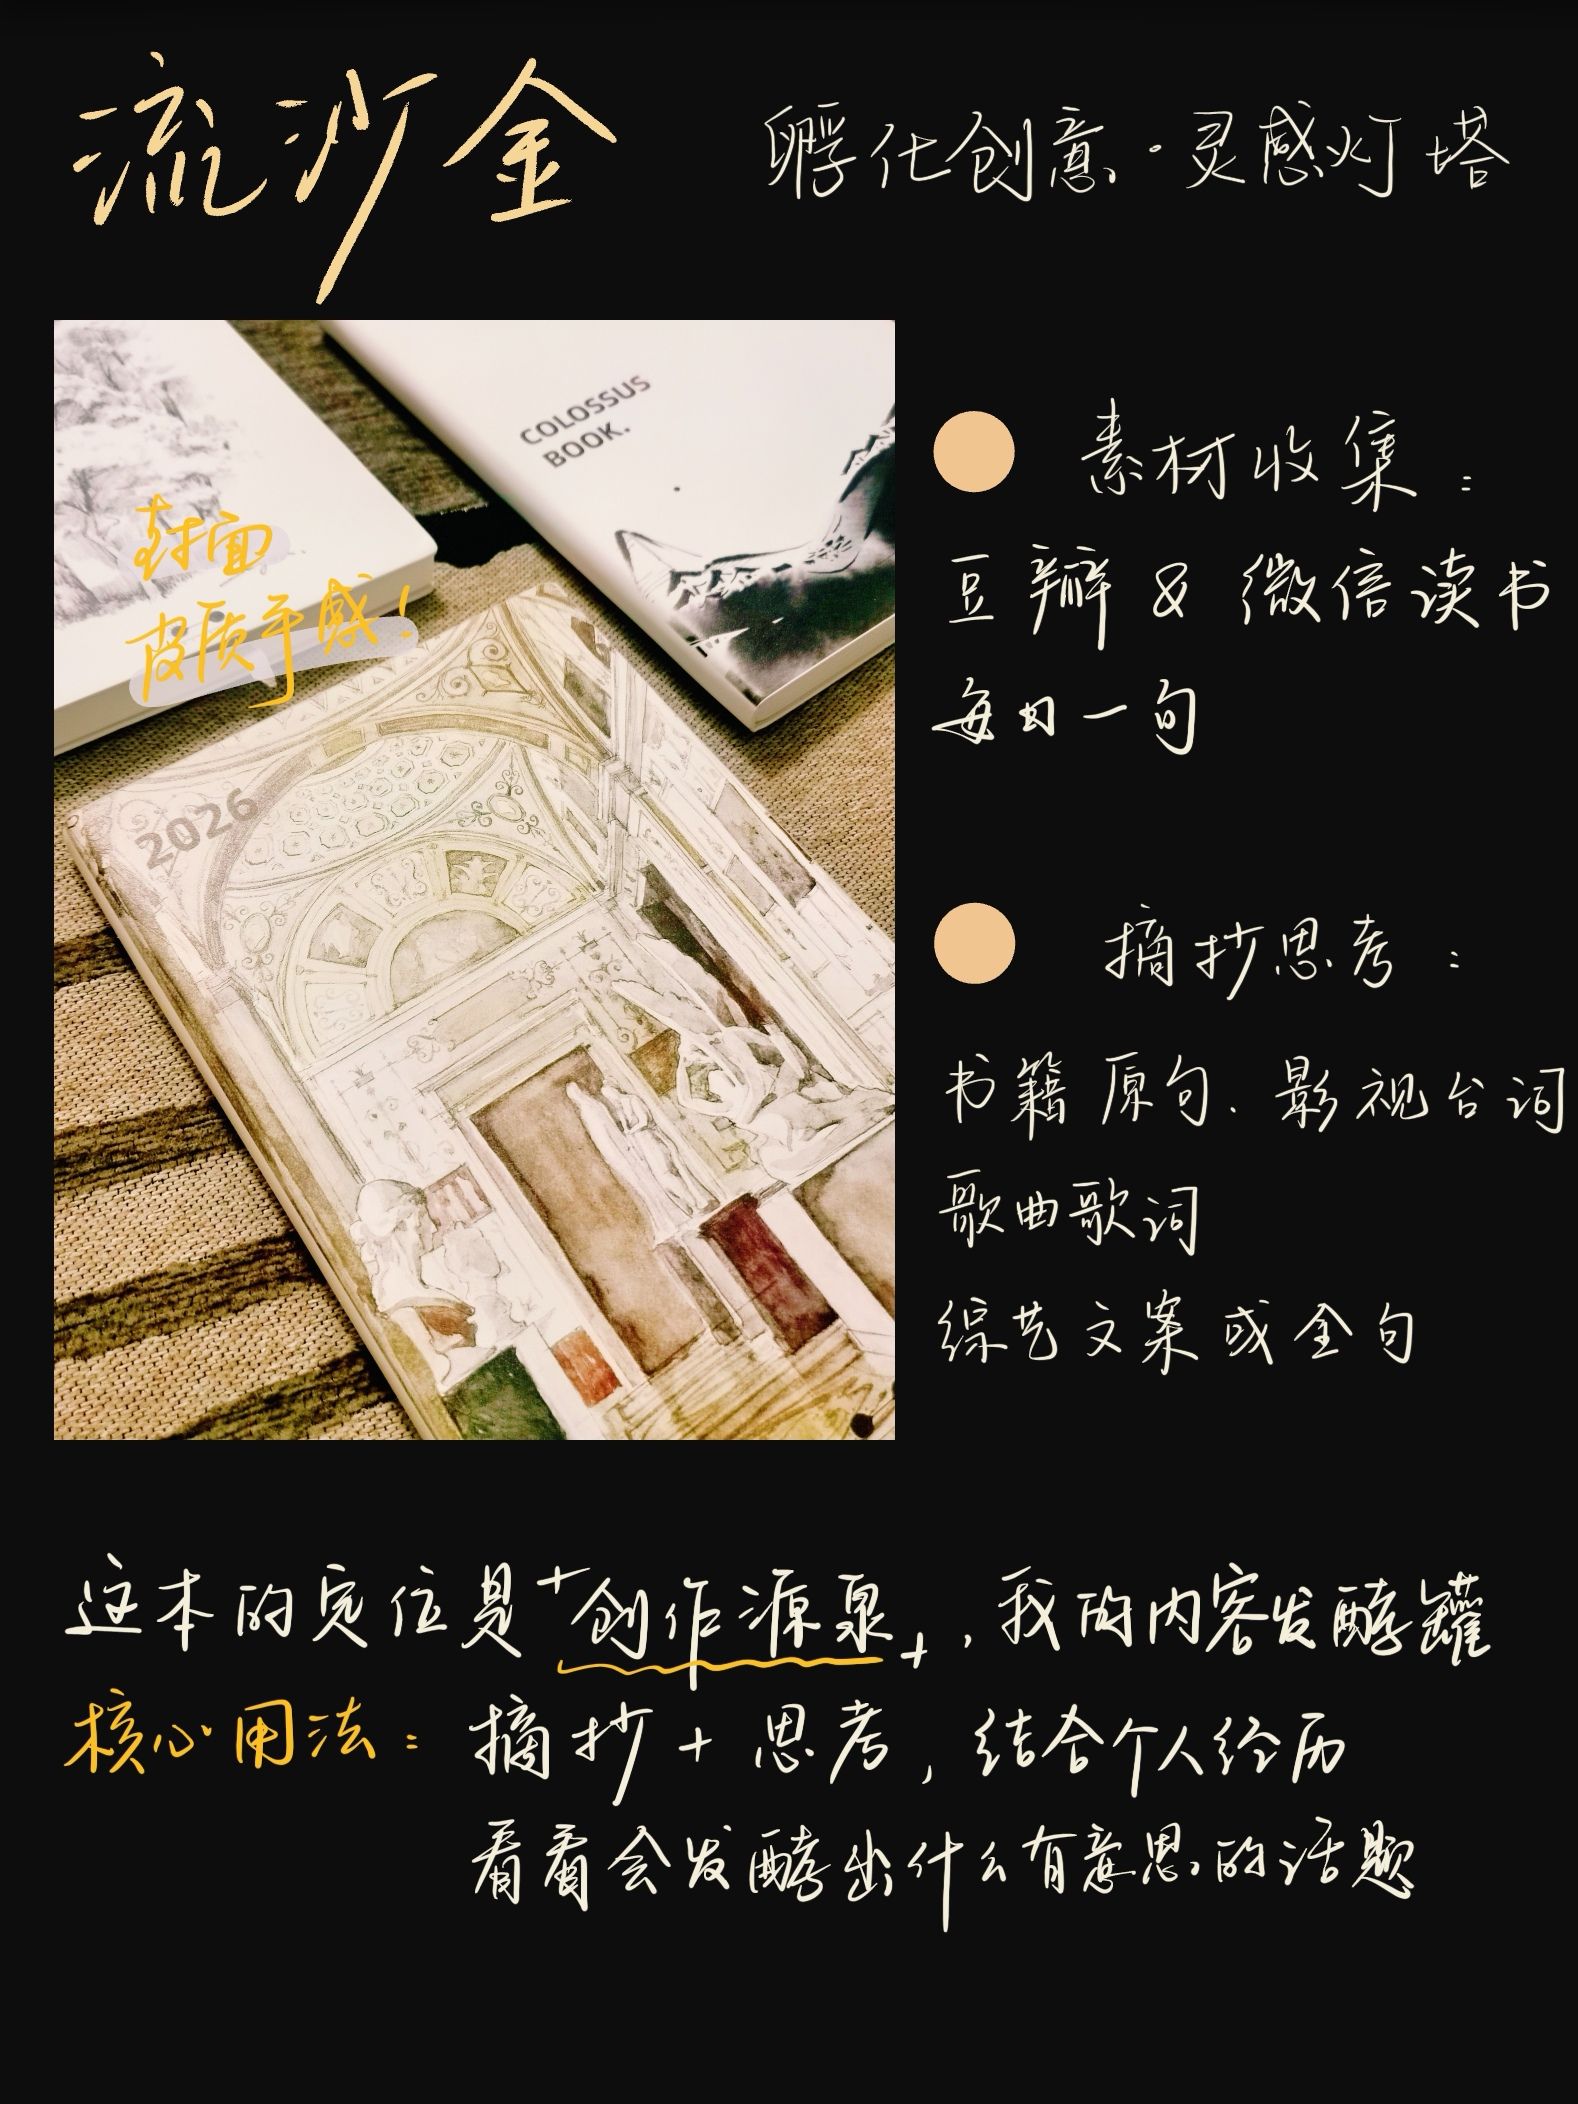 流沙金
孵化创意·灵感灯塔
COLOSSUS
BOOK.
封面
皮质手感！
2026
素材收集：
豆瓣 & 微信读书
每日一句
摘抄思考：
书籍原句、影视台词
歌曲歌词
综艺文案或金句
这本的定位是“创作源泉”，我的内容发酵罐
核心用法：摘抄+思考，结合个人经历
看看会发酵出什么有意思的话题